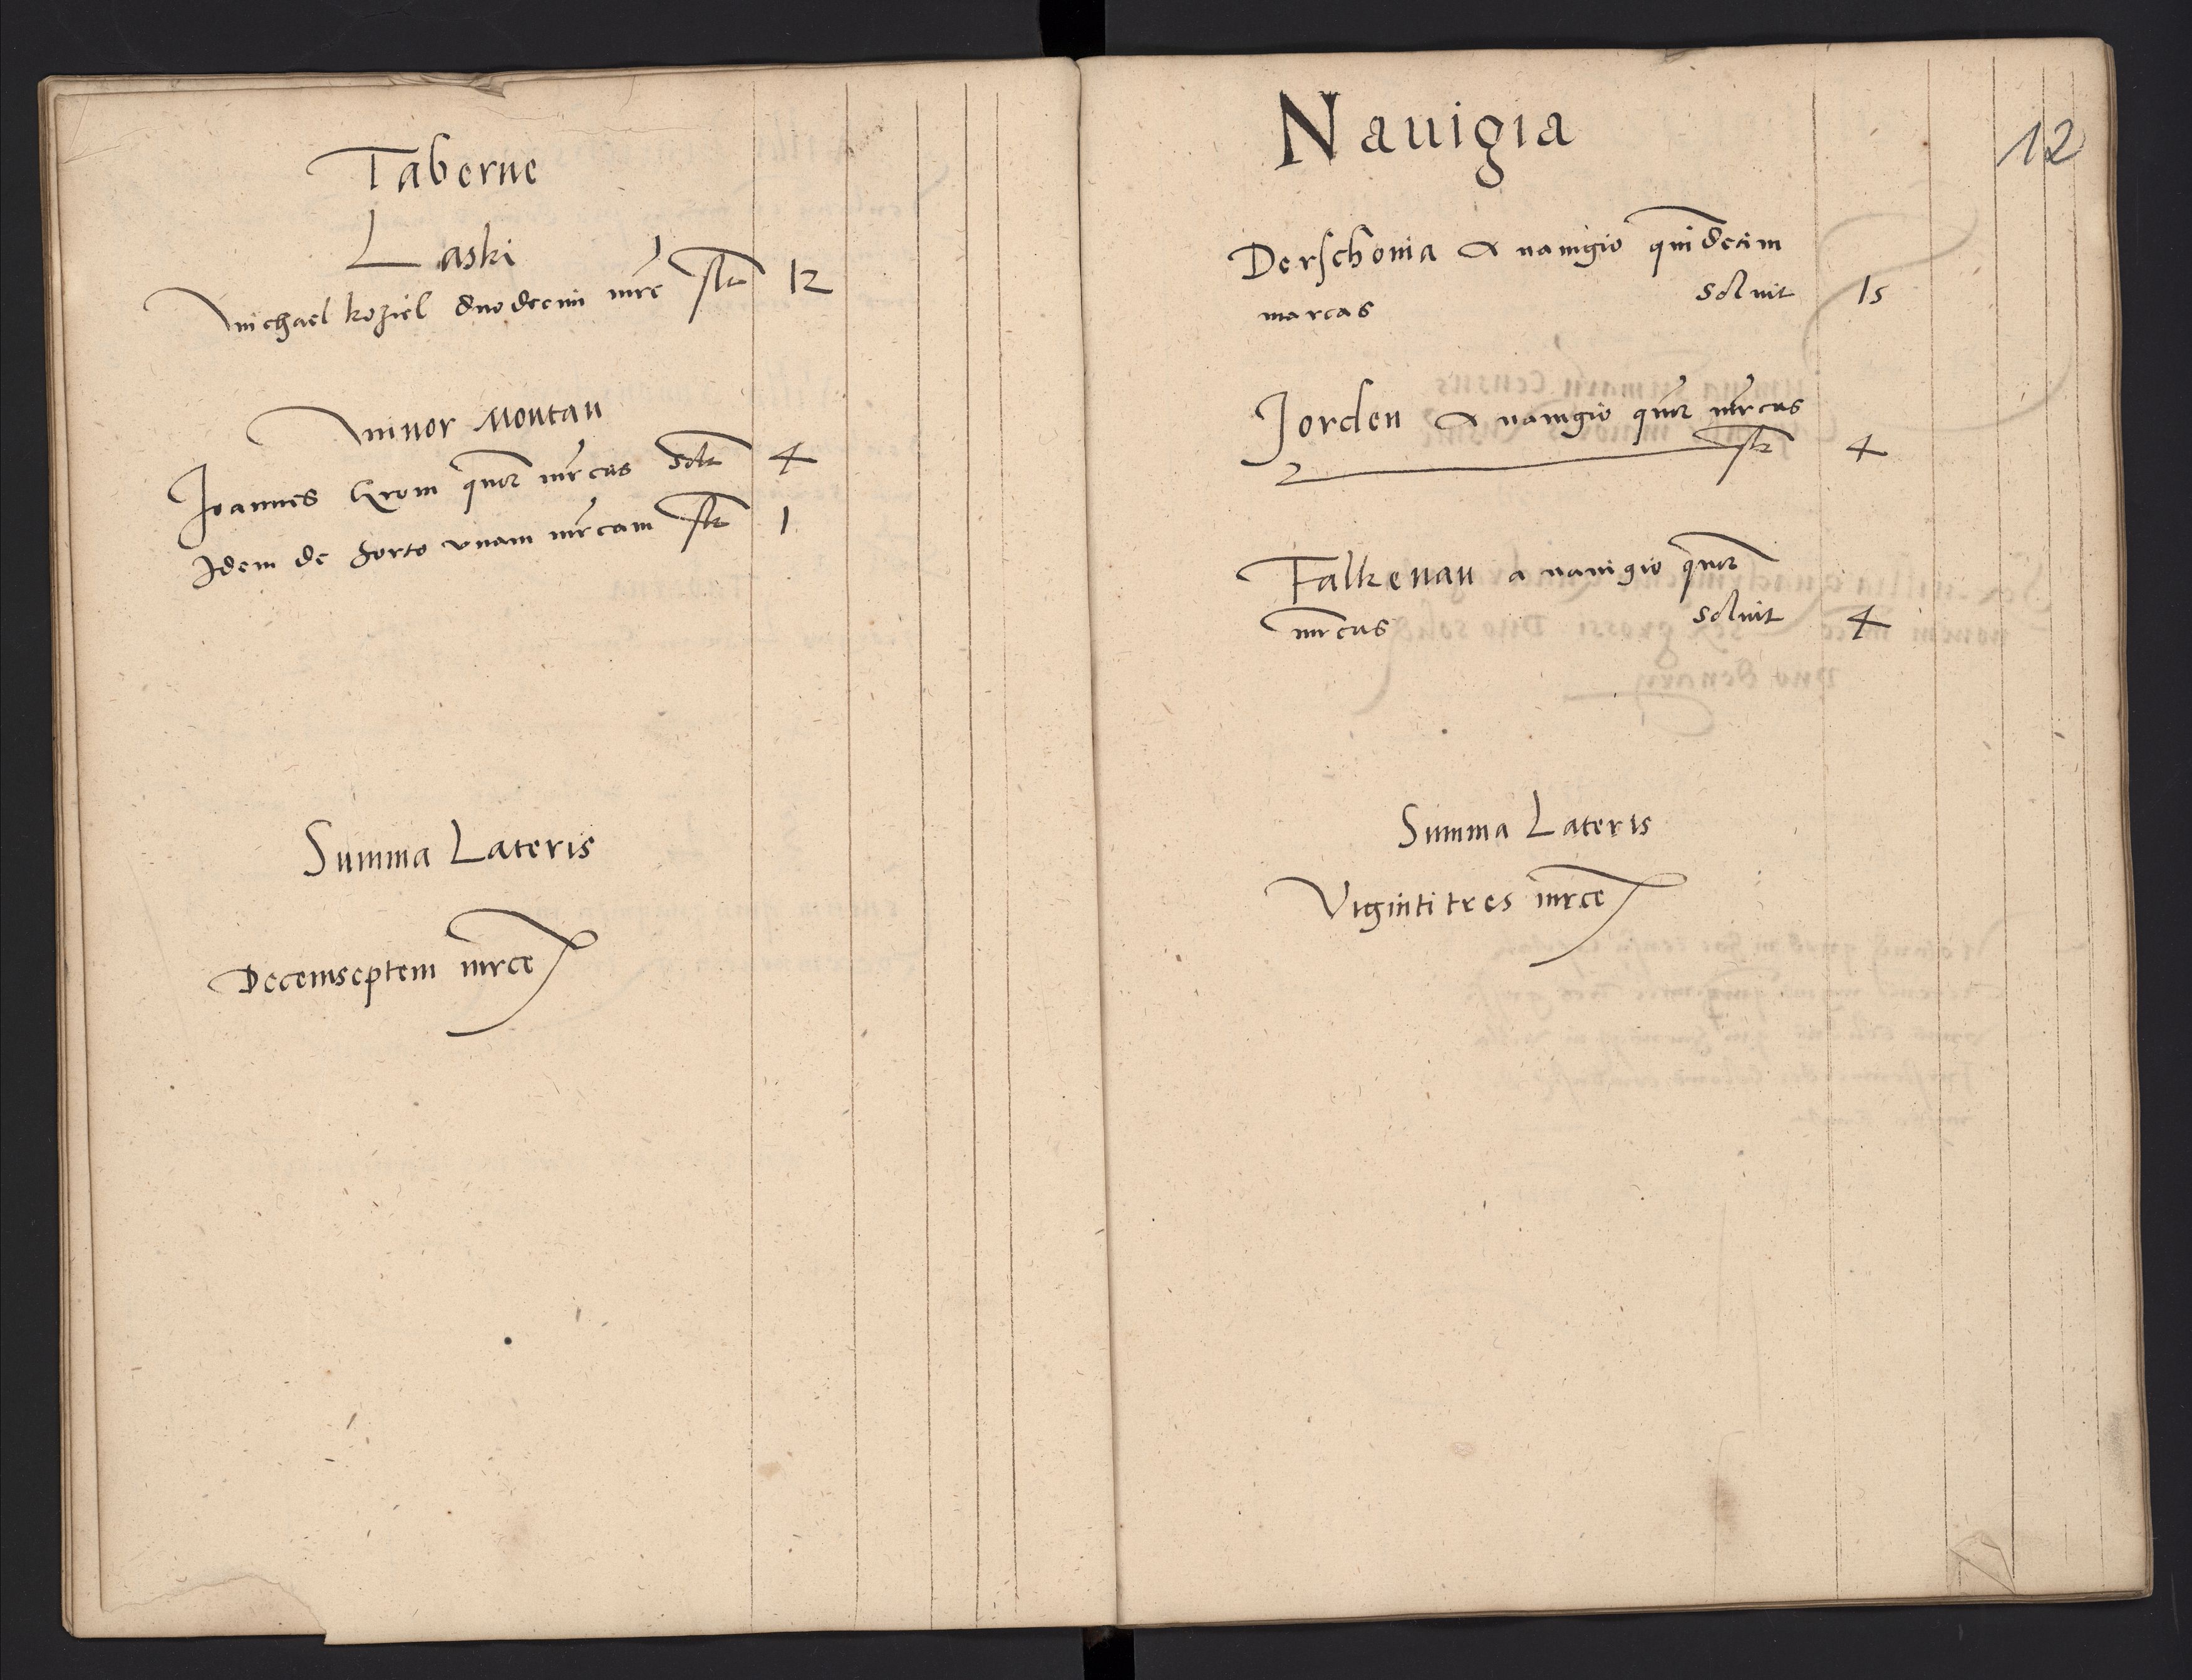 Taberne
Laski
Michael koziel duodecim mrc solt 12
Minor Montau
Joannes Grom quor mrcas solt 4
Idem de horto vnam mrcam solt 1
Summa Lateris
Decemseptem mrce
12
Nauigia
Derschouia a nauigio quindecim
marcas soluit 15
Jorden a nauigio quor mrcas
solt 4
Falkenau a nauigio quor
mrcas soluit 4
Summa Lateris
Viginti tres mrce